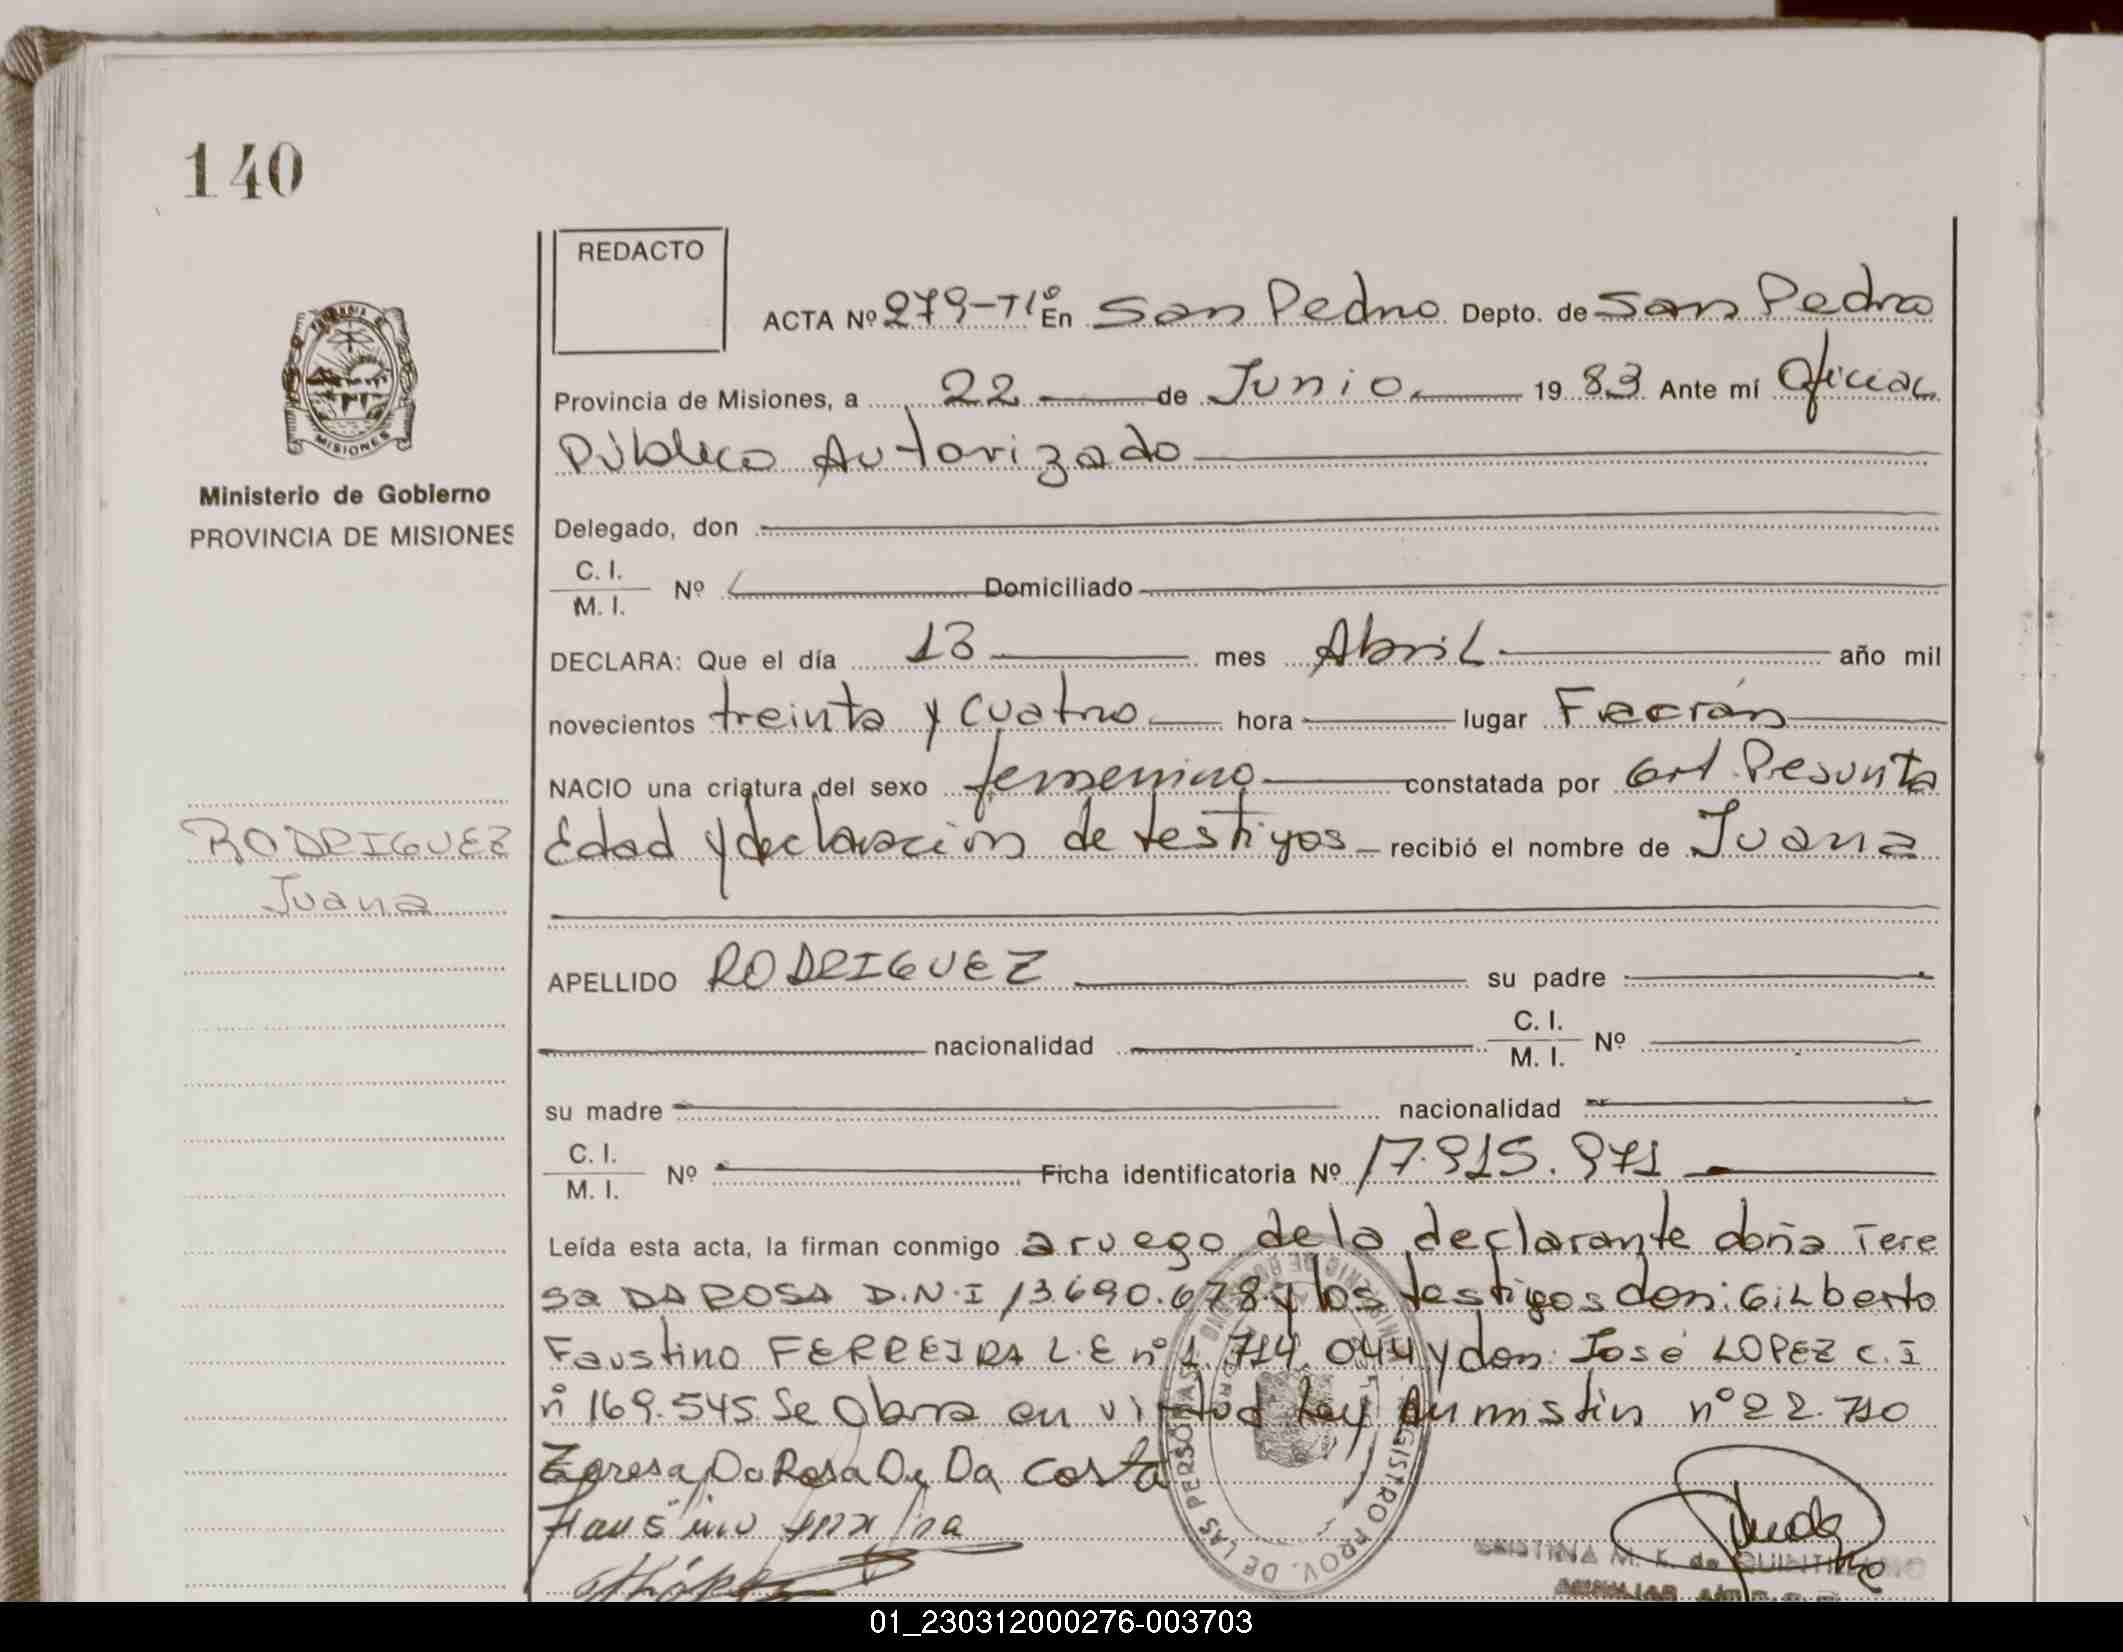 140
REDACTO
ACTA Nº 279-TIº En San Pedro Depto. de San Pedro
Provincia de Misiones, a 22 de Junio 1983 Ante mí Oficial
Público Autorizado
Delegado, don
C. I.
M. I. Nº Domiciliado
DECLARA: Que el día 13 mes Abril año mil
novecientos treinta y cuatro hora lugar Fracrán
NACIO una criatura del sexo femenino constatada por Cert. Presunta
Edad y declaración de testigos recibió el nombre de Juana
APELLIDO RODRIGUEZ su padre
nacionalidad C. I.
M. I. Nº
su madre nacionalidad
C. I.
M. I. Nº Ficha identificatoria Nº 17.915.971
Leída esta acta, la firman conmigo a ruego de la declarante doña Tere
sa DA ROSA D.N.I 13.690.678 y los testigos don: Gilberto
Faustino FERREIRA L.E nº 1.714.044 y don: José LOPEZ C.I
nº 169.545. Se labra en virtud Ley nº 22.710
Teresa Da Rosa De Da Costa
MISIONES
Ministerio de Gobierno
PROVINCIA DE MISIONES
RODRIGUEZ
Juana
REGISTRO PROV. DE LAS PERSONAS
CRISTINA M. K. de QUINTILIANO
01_230312000276-003703